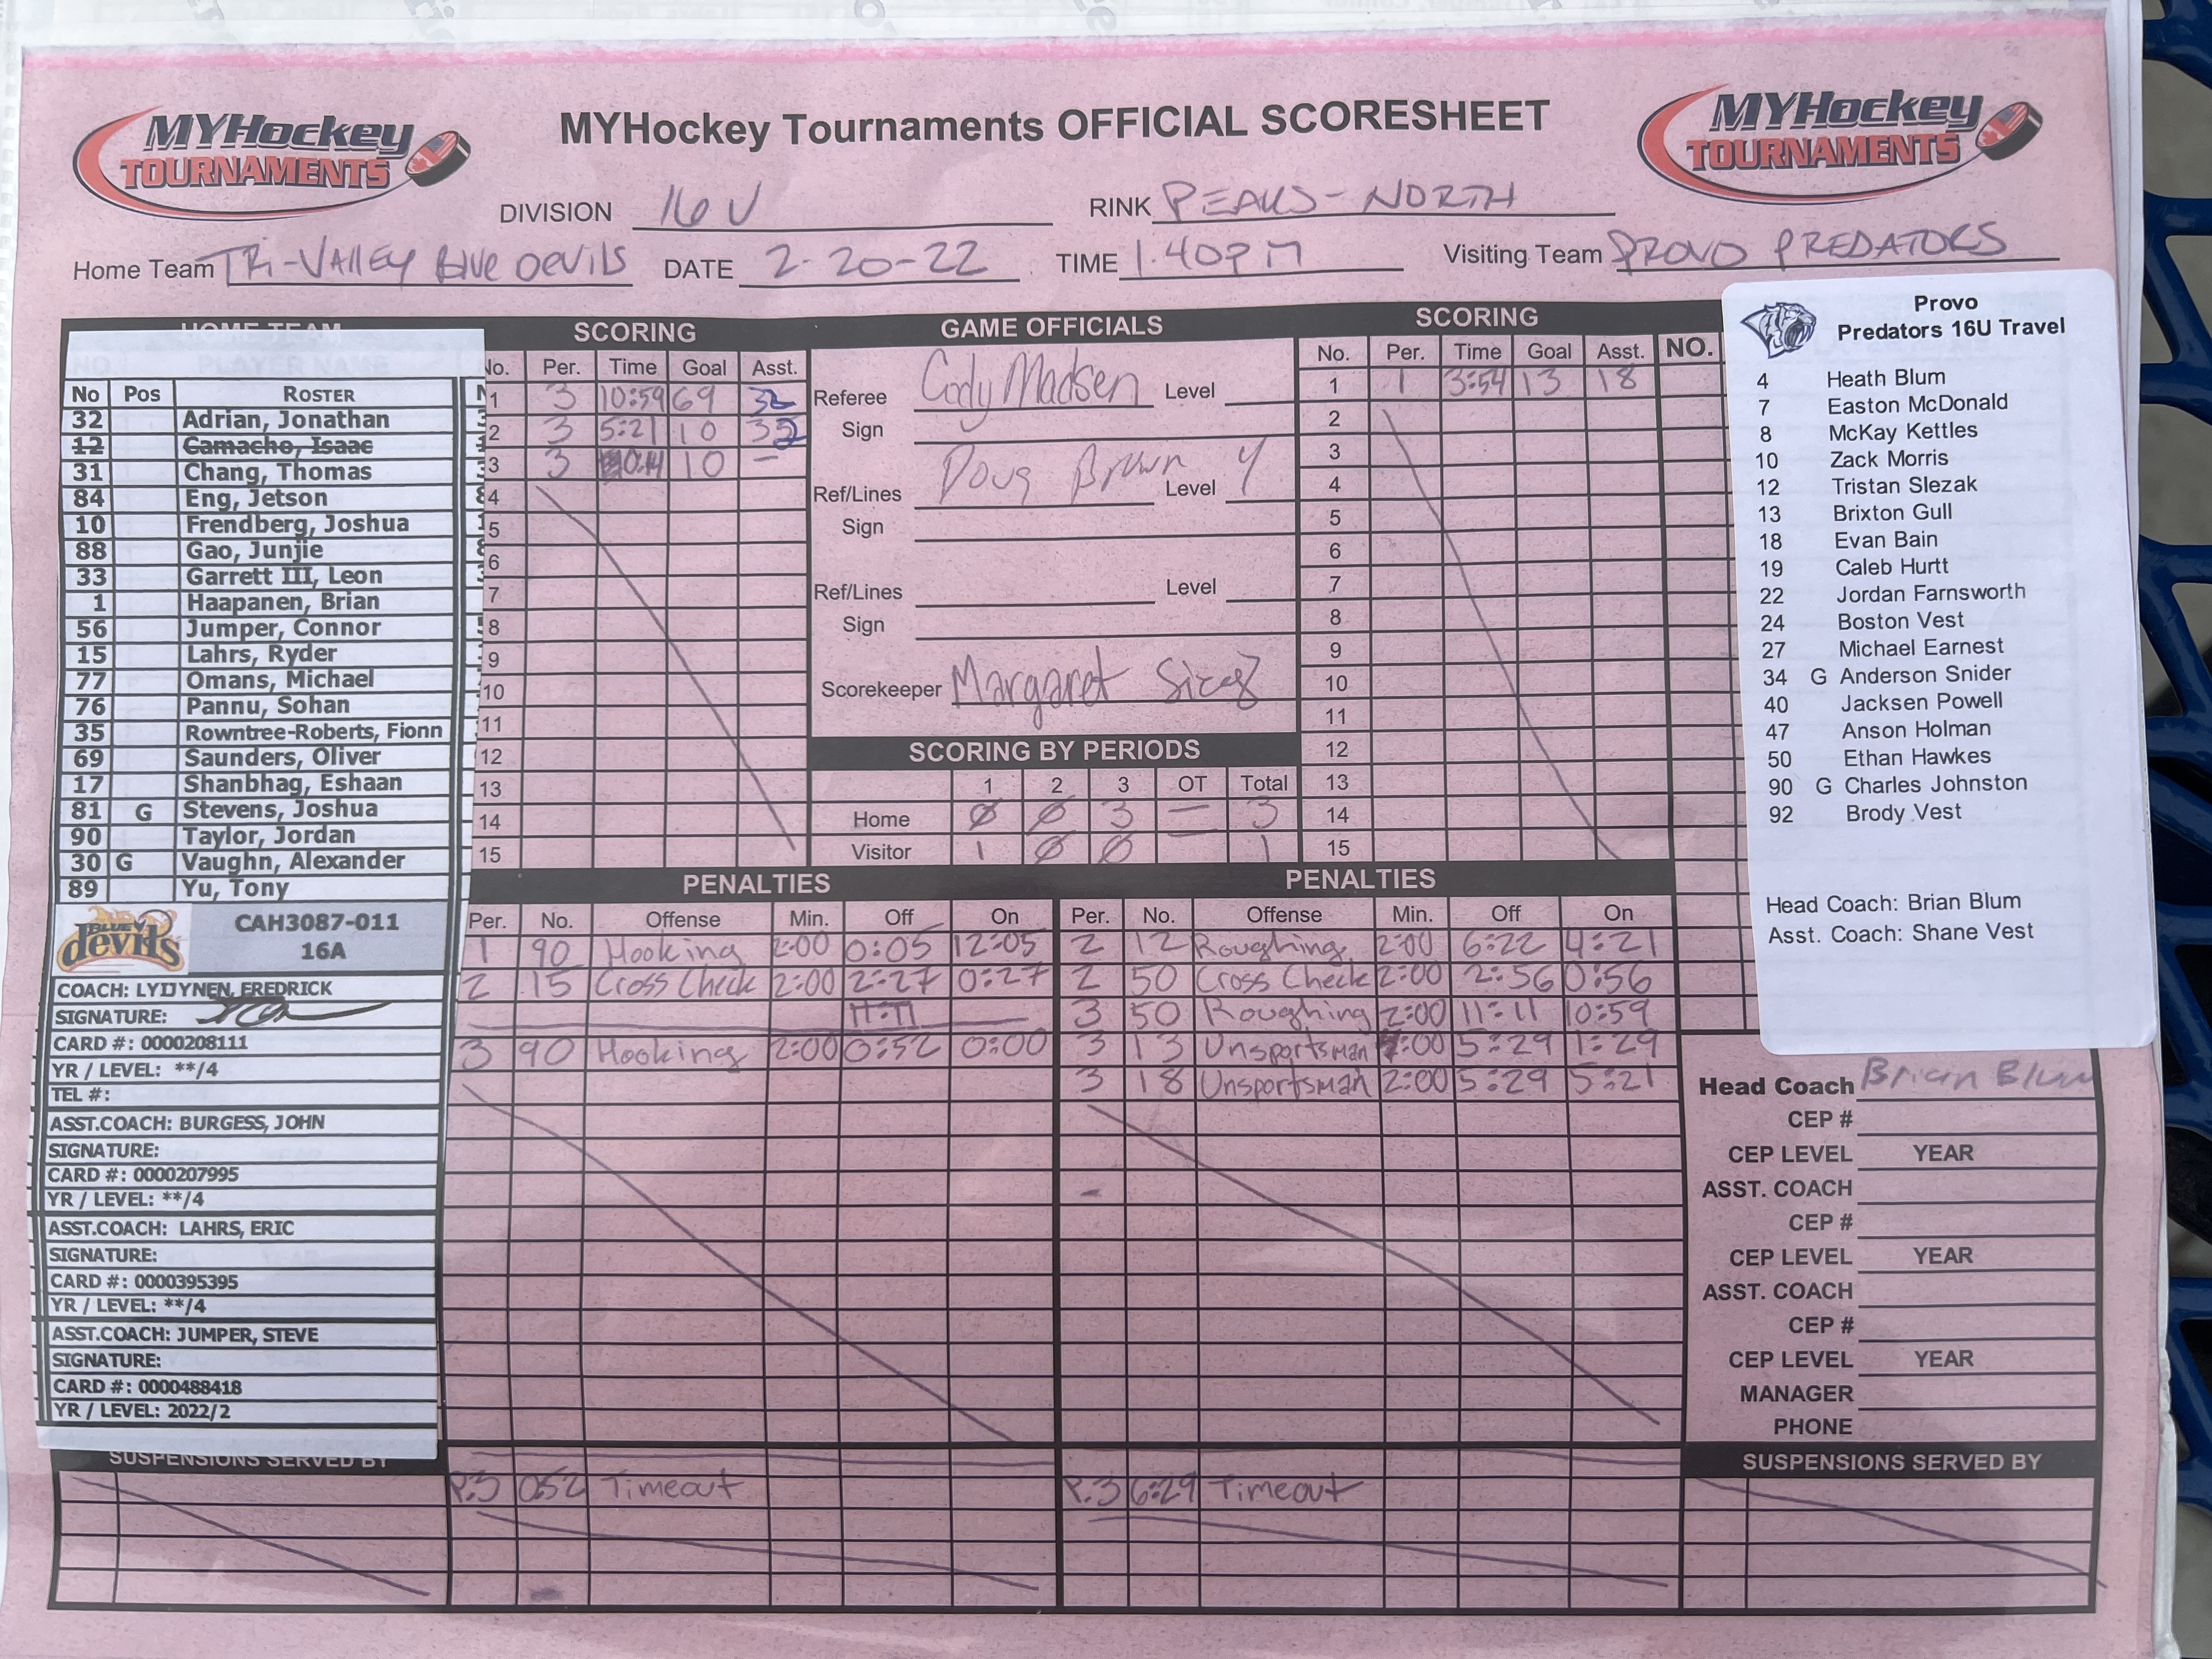 MYHockey TOURNAMENTS
MYHockey Tournaments OFFICIAL SCORESHEET
MYHockey TOURNAMENTS
DIVISION 16U RINK PEAKS-NORTH
Home Team Tri-Valley Blue Devils DATE 2-20-22 TIME 1:40PM Visiting Team PROVO PREDATORS
HOME TEAM
NO. PLAYER NAME
No Pos ROSTER
32 Adrian, Jonathan
12 Camacho, Isaac
31 Chang, Thomas
84 Eng, Jetson
10 Frendberg, Joshua
88 Gao, Junjie
33 Garrett III, Leon
1 Haapanen, Brian
56 Jumper, Connor
15 Lahrs, Ryder
77 Omans, Michael
76 Pannu, Sohan
35 Rowntree-Roberts, Fionn
69 Saunders, Oliver
17 Shanbhag, Eshaan
81 G Stevens, Joshua
90 Taylor, Jordan
30 G Vaughn, Alexander
89 Yu, Tony
BLUE devils
CAH3087-011
16A
COACH: LYIJYNEN, FREDRICK
SIGNATURE:
CARD #: 0000208111
YR / LEVEL: **/4
TEL #:
ASST.COACH: BURGESS, JOHN
SIGNATURE:
CARD #: 0000207995
YR / LEVEL: **/4
ASST.COACH: LAHRS, ERIC
SIGNATURE:
CARD #: 0000395395
YR / LEVEL: **/4
ASST.COACH: JUMPER, STEVE
SIGNATURE:
CARD #: 0000488418
YR / LEVEL: 2022/2
SUSPENSIONS SERVED BY
SCORING
No. Per. Time Goal Asst.
1 3 10:59 69 32
2 3 5:21 10 32
3 3 0:14 10 –
4
5
6
7
8
9
10
11
12
13
14
15
GAME OFFICIALS
Referee Cody Madsen Level
Sign
Ref/Lines Doug Brown Level 4
Sign
Ref/Lines Level
Sign
Scorekeeper Margaret
SCORING BY PERIODS
1 2 3 OT Total
Home Ø Ø 3 — 3
Visitor 1 Ø Ø 1
SCORING
No. Per. Time Goal Asst.
1 1 3:54 13 18
2
3
4
5
6
7
8
9
10
11
12
13
14
15
NO.
PENALTIES
Per. No. Offense Min. Off On
1 90 Hooking 2:00 0:05 12:05
2 15 Cross Check 2:00 2:27 0:27
11:11
3 90 Hooking 2:00 0:52 0:00
P.3 0:52 Timeout
PENALTIES
Per. No. Offense Min. Off On
2 12 Roughing 2:00 6:22 4:21
2 50 Cross Check 2:00 2:56 0:56
3 50 Roughing 2:00 11:11 10:59
3 13 Unsportsman :00 5:29 1:29
3 18 Unsportsman 2:00 5:29 5:21
P.3 6:29 Timeout
Provo
Predators 16U Travel
4 Heath Blum
7 Easton McDonald
8 McKay Kettles
10 Zack Morris
12 Tristan Slezak
13 Brixton Gull
18 Evan Bain
19 Caleb Hurtt
22 Jordan Farnsworth
24 Boston Vest
27 Michael Earnest
34 G Anderson Snider
40 Jacksen Powell
47 Anson Holman
50 Ethan Hawkes
90 G Charles Johnston
92 Brody Vest
Head Coach: Brian Blum
Asst. Coach: Shane Vest
Head Coach Brian Blum
CEP #
CEP LEVEL YEAR
ASST. COACH
CEP #
CEP LEVEL YEAR
ASST. COACH
CEP #
CEP LEVEL YEAR
MANAGER
PHONE
SUSPENSIONS SERVED BY